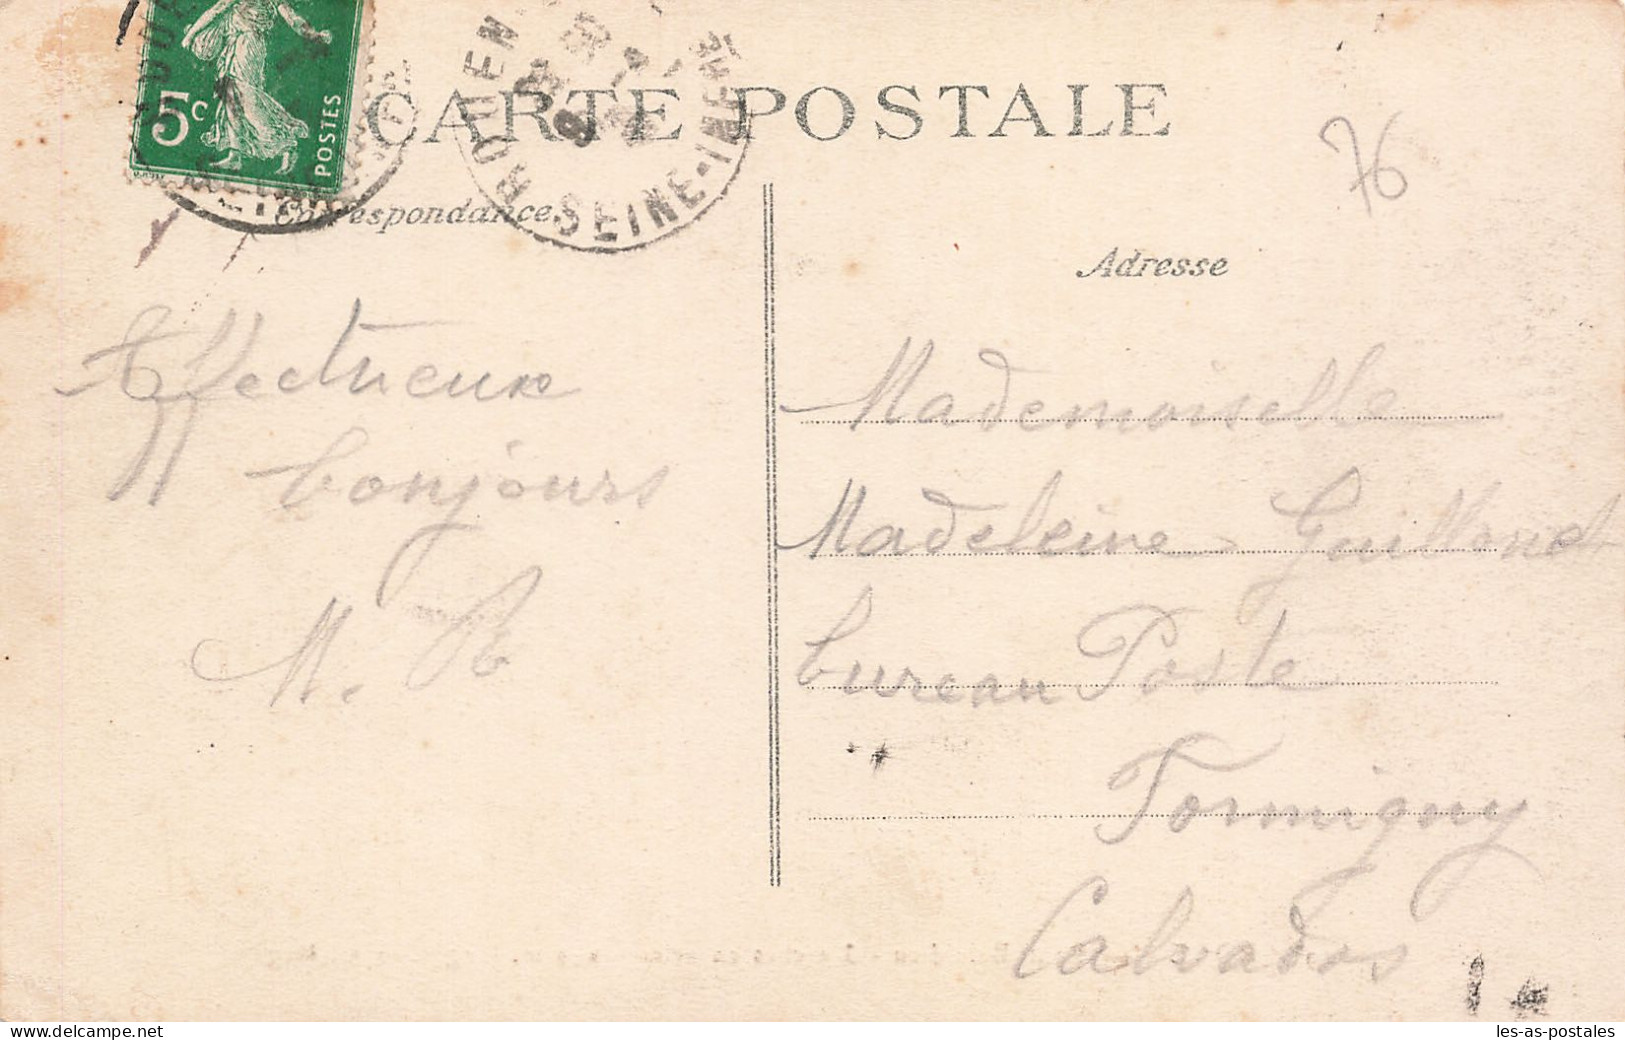 5c
POSTES
CARTE POSTALE
ROUEN
SEINE-INFRE
76
Correspondance
Adresse
Affectueux
bonjours
M. R
Mademoiselle
Madeleine
bureau Poste
Formigny
Calvados
les-as-postales